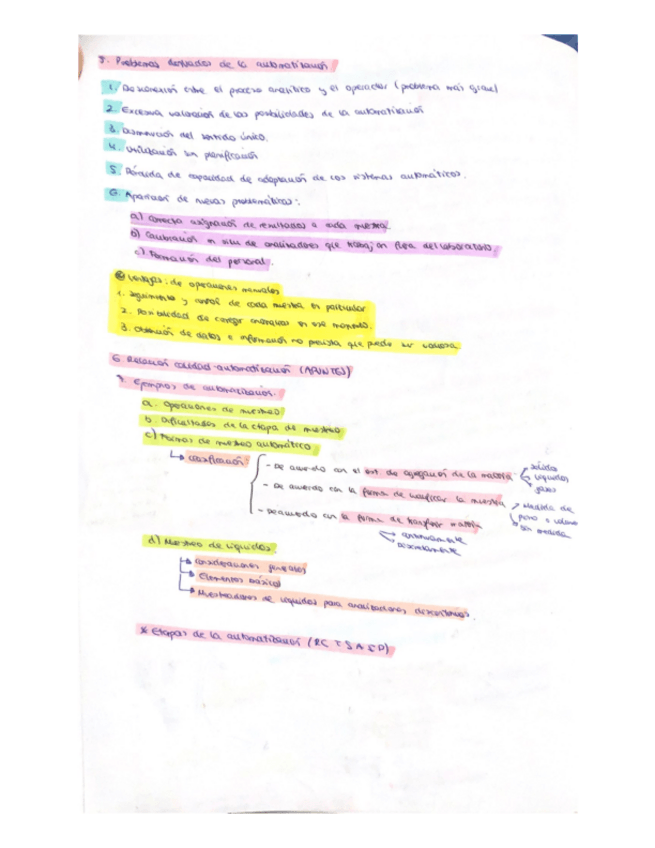 5. Problemas derivados de la automatización
1. Desconexión entre el proceso analítico y el operador (problema más grave)
2. Excesiva valoración de las posibilidades de la automatización
3. Disminución del sentido único.
4. Utilización sin planificación
5. Pérdida de capacidad de adaptación de los sistemas automáticos.
6. Aparición de nuevas problemáticas:
a) correcta asignación de resultados a cada muestra.
b) Calibración in situ de analizadores que trabajan fuera del laboratorio.
c) Formación del personal.
Ventajas: de operaciones manuales
1. Seguimiento y control de cada muestra en particular
2. Posibilidad de corregir anomalías en ese momento.
3. Obtención de datos e información no prevista que puede ser valiosa.
6 Relación calidad-automatización (APUNTES)
7. Ejemplos de automatización.
a. Operaciones de muestreo
b. Dificultades de la etapa de muestreo
c) Formas de muestreo automático
↳ clasificación
- De acuerdo con el est. de agregación de la materia
sólidos
líquidos
gases
- De acuerdo con la forma de la muestra
- De acuerdo con la forma de transferir materia
Medida de
peso o volumen
sin medida
continuamente
discretamente
d) Muestreo de líquidos
↳ consideraciones generales
↳ Elementos básicos
↳ Muestreadores de líquidos para analizadores discontinuos.
* Etapas de la automatización (RC T S A S D)